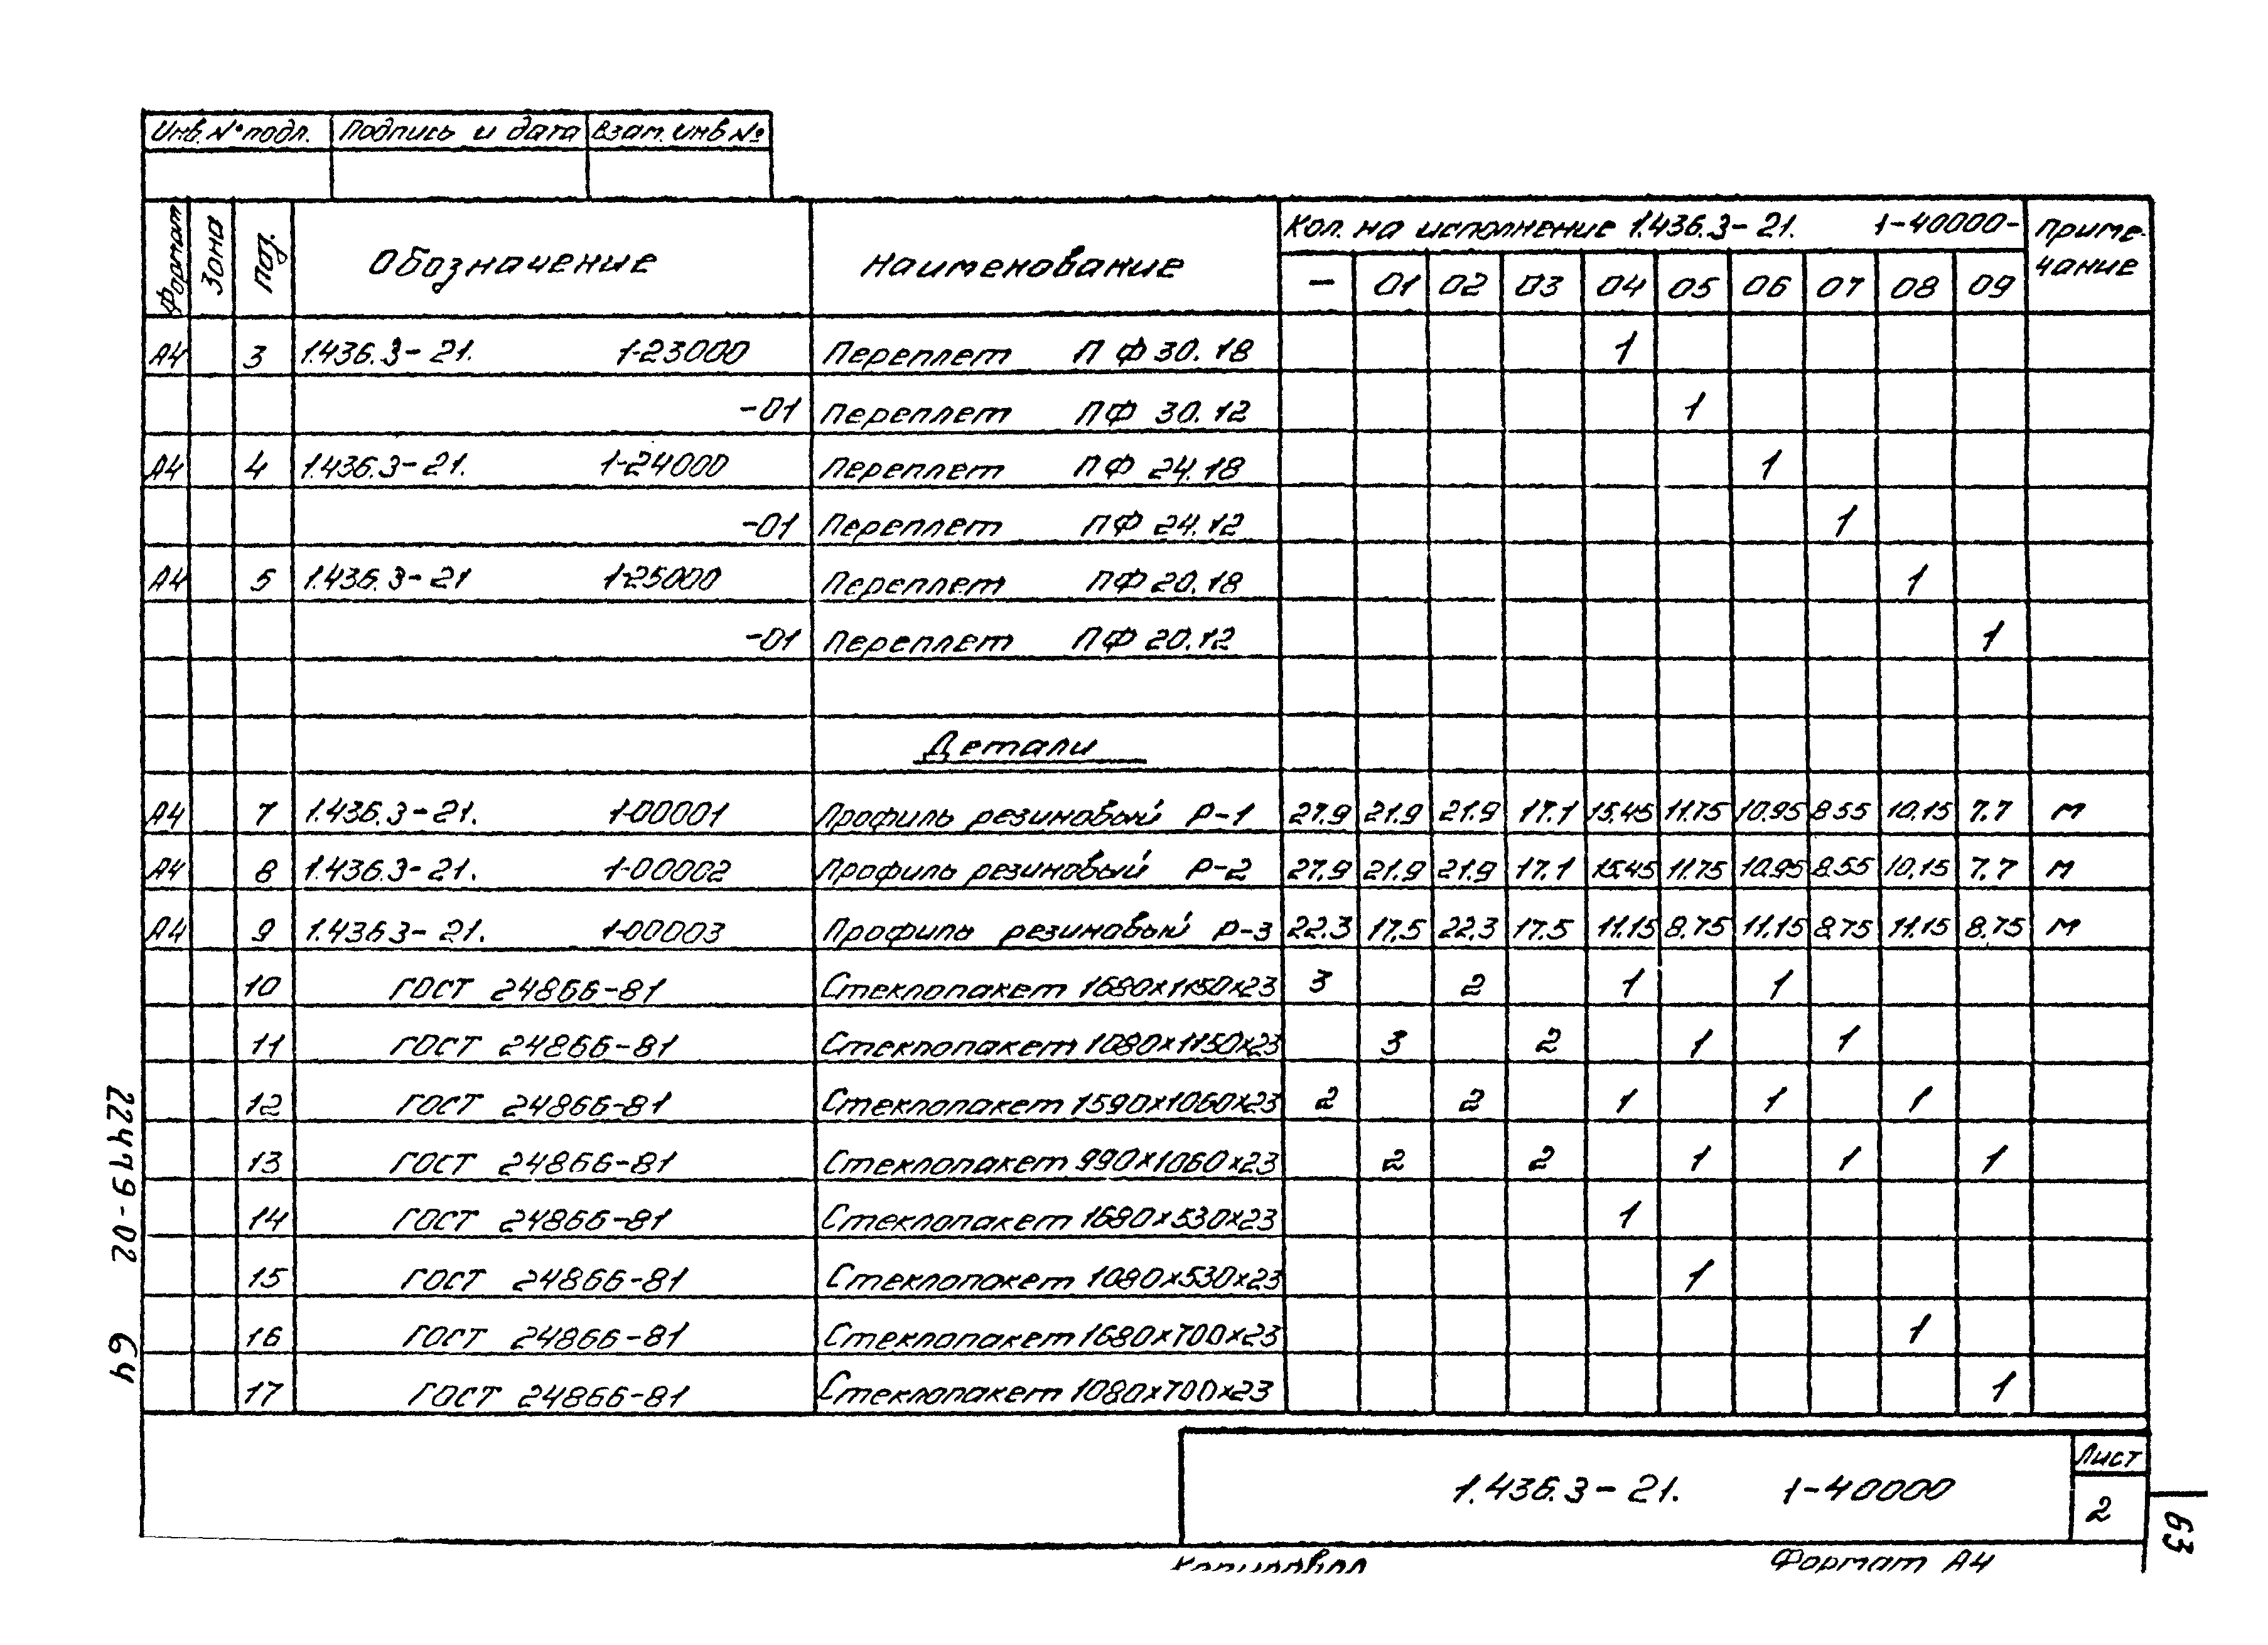 Инв. № подл. Подпись и дата Взам. инв №
Формат Зона Поз. Обозначение Наименование Кол. на исполнение 1.436.3-21. 1-40000- Примечание
- 01 02 03 04 05 06 07 08 09
А4 3 1.436.3-21. 1-23000 Переплет ПФ 30.18 1
-01 Переплет ПФ 30.12 1
А4 4 1.436.3-21. 1-24000 Переплет ПФ 24.18 1
-01 Переплет ПФ 24.12 1
А4 5 1.436.3-21 1-25000 Переплет ПФ 20.18 1
-01 Переплет ПФ 20.12 1
Детали
А4 7 1.436.3-21. 1-00001 Профиль резиновый Р-1 27.9 21.9 21.9 17.1 15.45 11.75 10.95 8.55 10.15 7.7 м
А4 8 1.436.3-21. 1-00002 Профиль резиновый Р-2 27.9 21.9 21.9 17.1 15.45 11.75 10.95 8.55 10.15 7.7 м
А4 9 1.436.3-21. 1-00003 Профиль резиновый Р-3 22.3 17.5 22.3 17.5 11.15 8.75 11.15 8.75 11.15 8.75 м
10 ГОСТ 24866-81 Стеклопакет 1680х1150х23 3 2 1 1
11 ГОСТ 24866-81 Стеклопакет 1080х1150х23 3 2 1 1
12 ГОСТ 24866-81 Стеклопакет 1590х1060х23 2 2 1 1 1
13 ГОСТ 24866-81 Стеклопакет 990х1060х23 2 2 1 1 1
14 ГОСТ 24866-81 Стеклопакет 1680х530х23 1
15 ГОСТ 24866-81 Стеклопакет 1080х530х23 1
16 ГОСТ 24866-81 Стеклопакет 1680х700х23 1
17 ГОСТ 24866-81 Стеклопакет 1080х700х23 1
22479-02 64
1.436.3-21. 1-40000
Лист
2
63
Копировал Формат А4